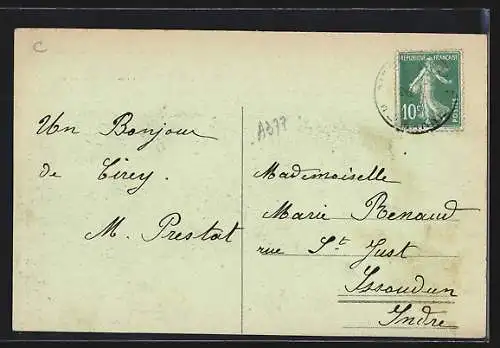 C
RÉPUBLIQUE FRANÇAISE
10c
POSTES
A377
Un Bonjour
de Cirey.
M. Prestat
Mademoiselle
Marie Renaud
rue St Just
Issoudun
Indre